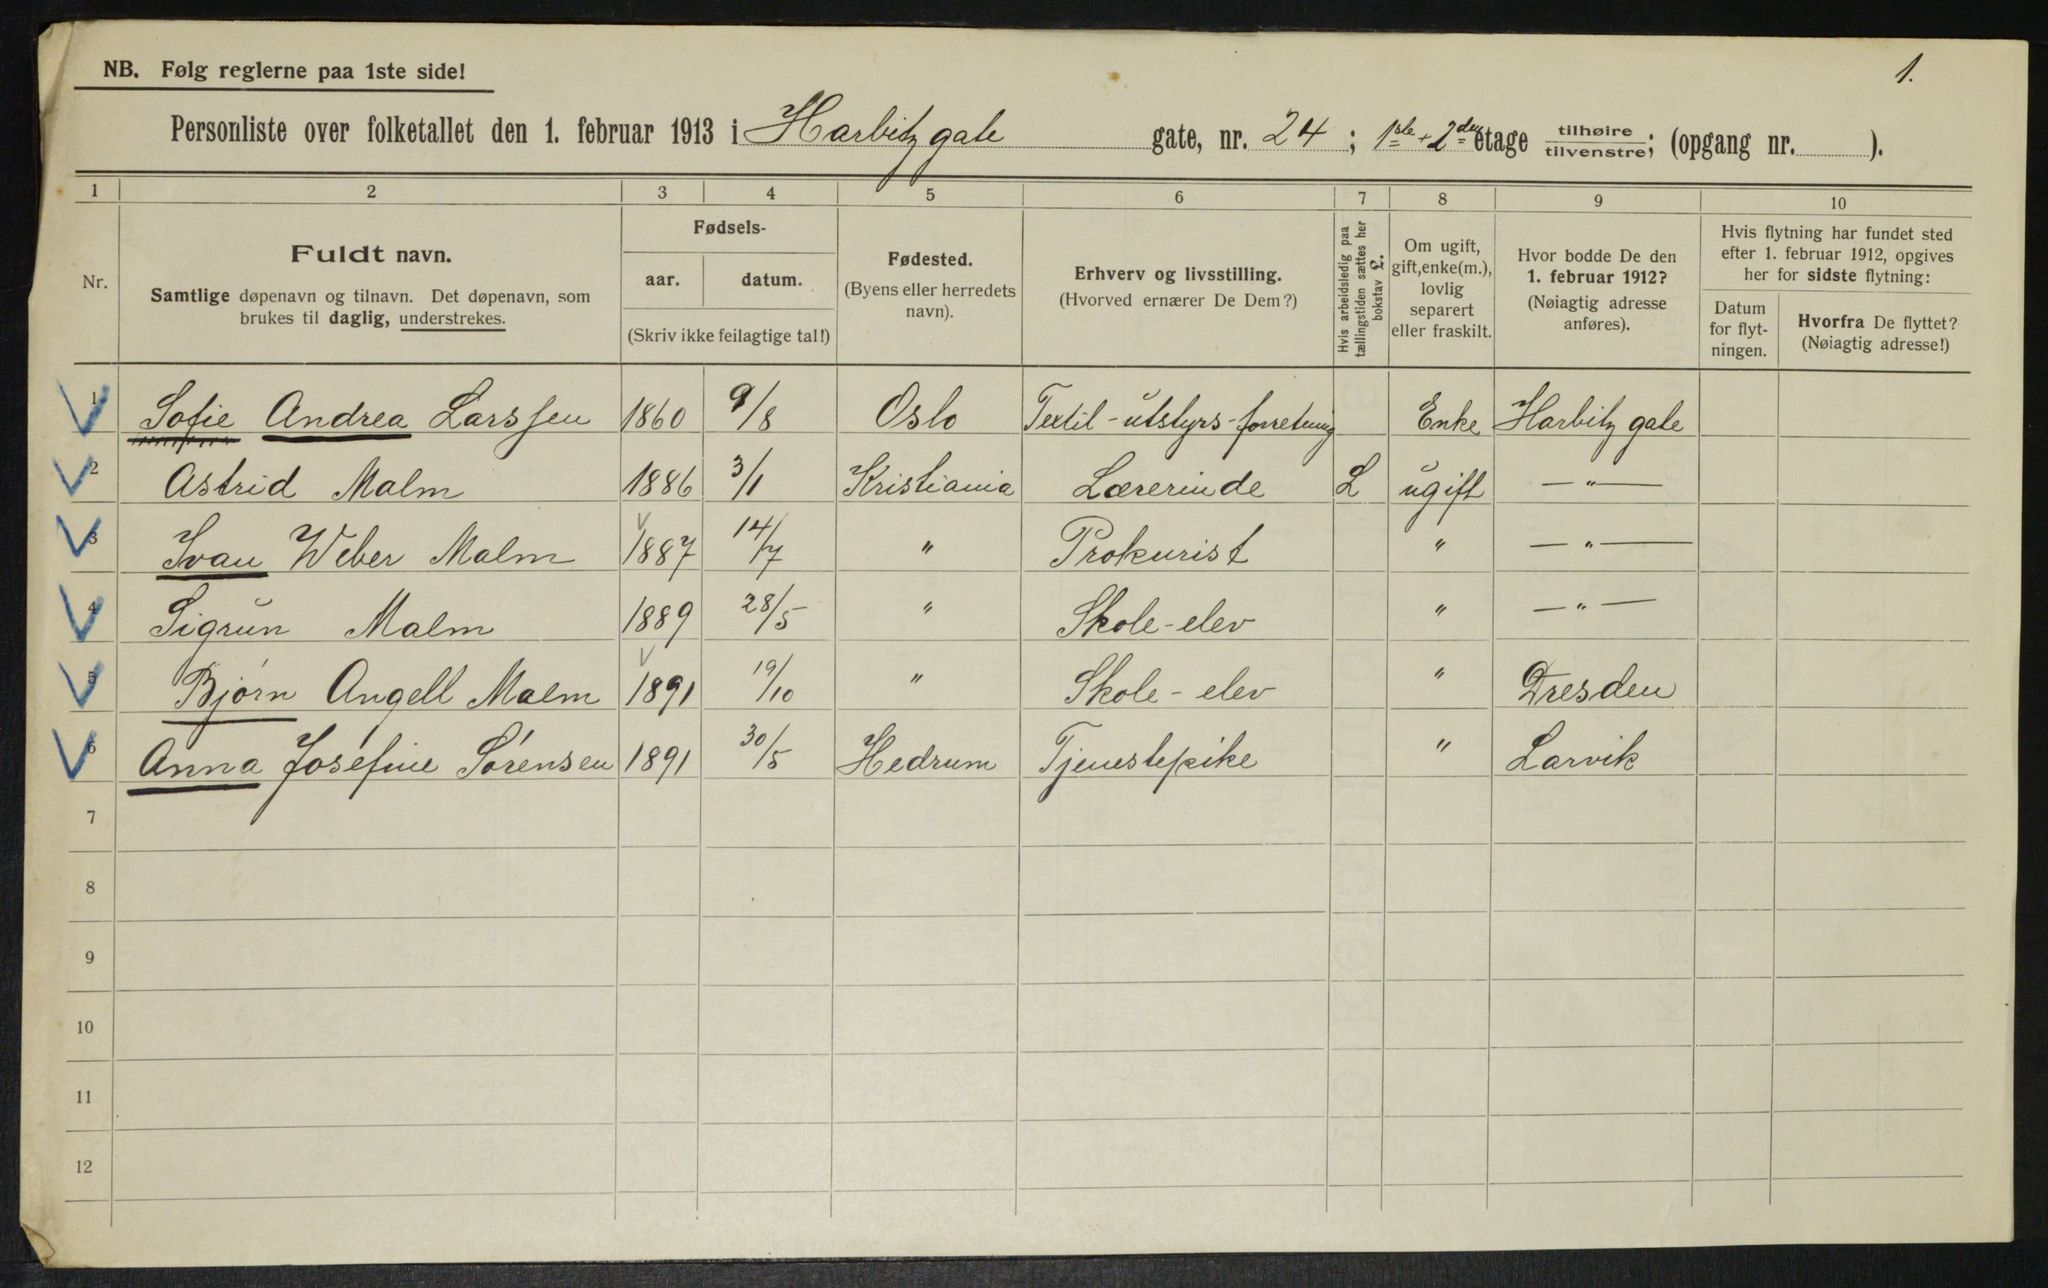 1.
NB. Følg reglerne paa 1ste side!
Personliste over folketallet den 1. februar 1913 i Harbitz gate gate, nr. 24; 1ste + 2den etage tilhøire tilvenstre; (opgang nr. ).
1 2 3 4 5 6 7 8 9 10
Nr.
Fuldt navn.
Samtlige døpenavn og tilnavn. Det døpenavn, som
brukes til daglig, understrekes.
Fødsels-
aar. datum.
(Skriv ikke feilagtige tal!)
Fødested.
(Byens eller herredets
navn).
Erhverv og livsstilling.
(Hvorved ernærer De Dem?)
Hvis arbeidsledig paa
tællingstiden sættes her
bokstav L.
Om ugift,
gift, enke(m.),
lovlig
separert
eller fraskilt.
Hvor bodde De den
1. februar 1912?
(Nøiagtig adresse
anføres).
Hvis flytning har fundet sted
efter 1. februar 1912, opgives
her for sidste flytning:
Datum
for flyt-
ningen.
Hvorfra De flyttet?
(Nøiagtig adresse!)
1 Sofie Andrea Larssen 1860 9/8 Oslo Textil-utstyrs-forretning Enke Harbitz gate
2 Astrid Malm 1886 3/1 Kristiania Lærerinde L ugift — " —
3 Ivan Weber Malm 1887 14/7 " Prokurist " — " —
4 Sigrun Malm 1889 28/5 " Skole-elev " — " —
5 Bjørn Angell Malm 1891 19/10 " Skole-elev " Dresden
6 Anna Josefine Sørensen 1891 30/5 Hedrum Tjenestepike " Larvik
7
8
9
10
11
12